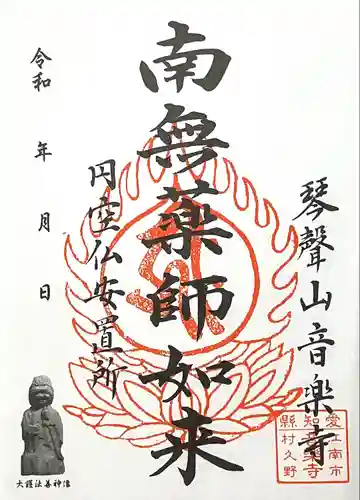 琴聲山音樂寺
南無藥師如来
円空仏安置所
令和 年 月 日
愛江南市
知音楽寺
縣村久野
大護法善神像